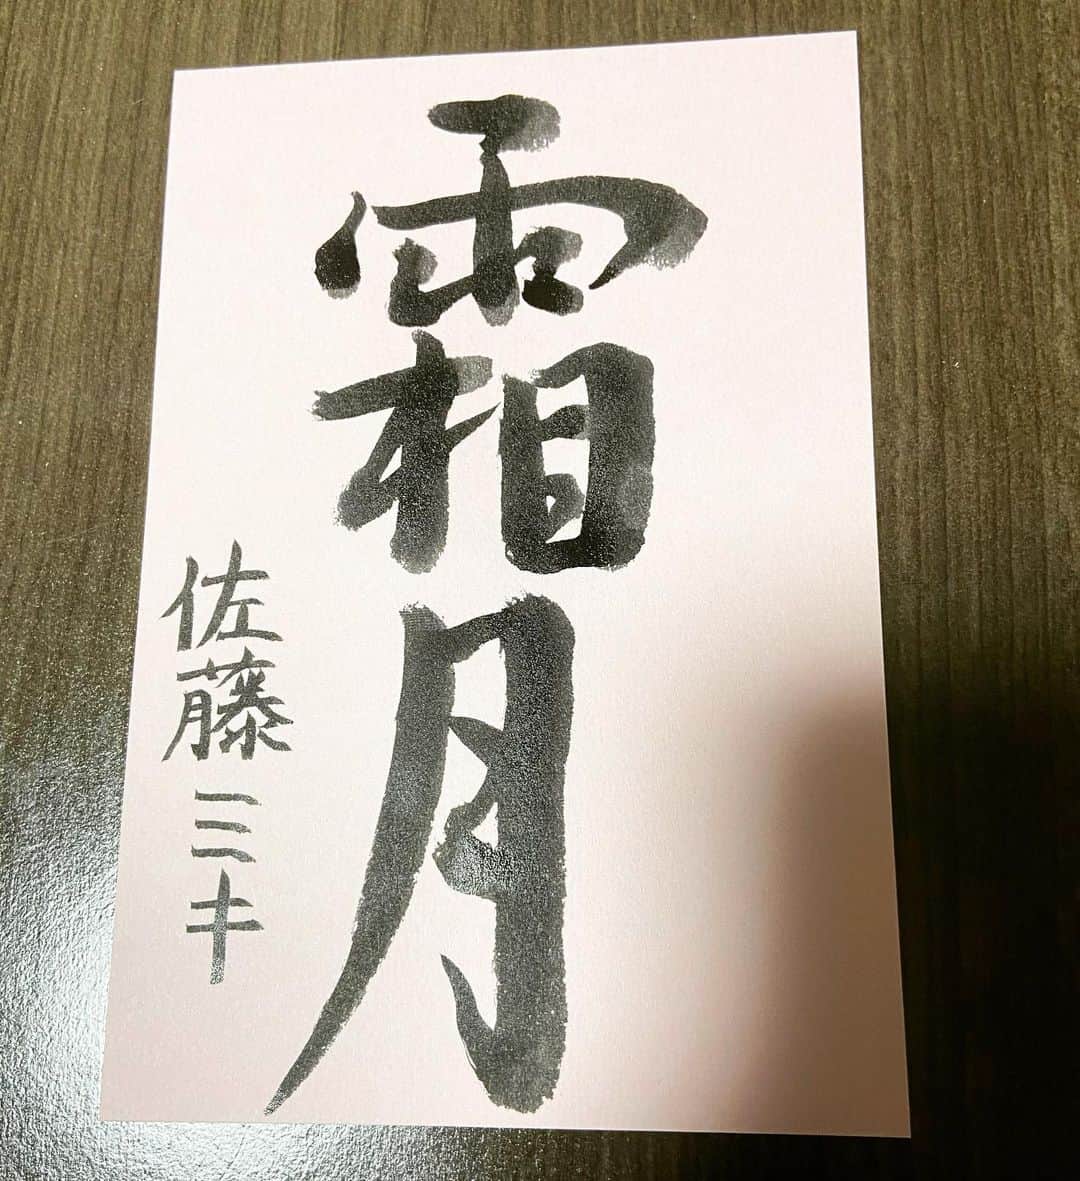 霜月
佐藤ミキ